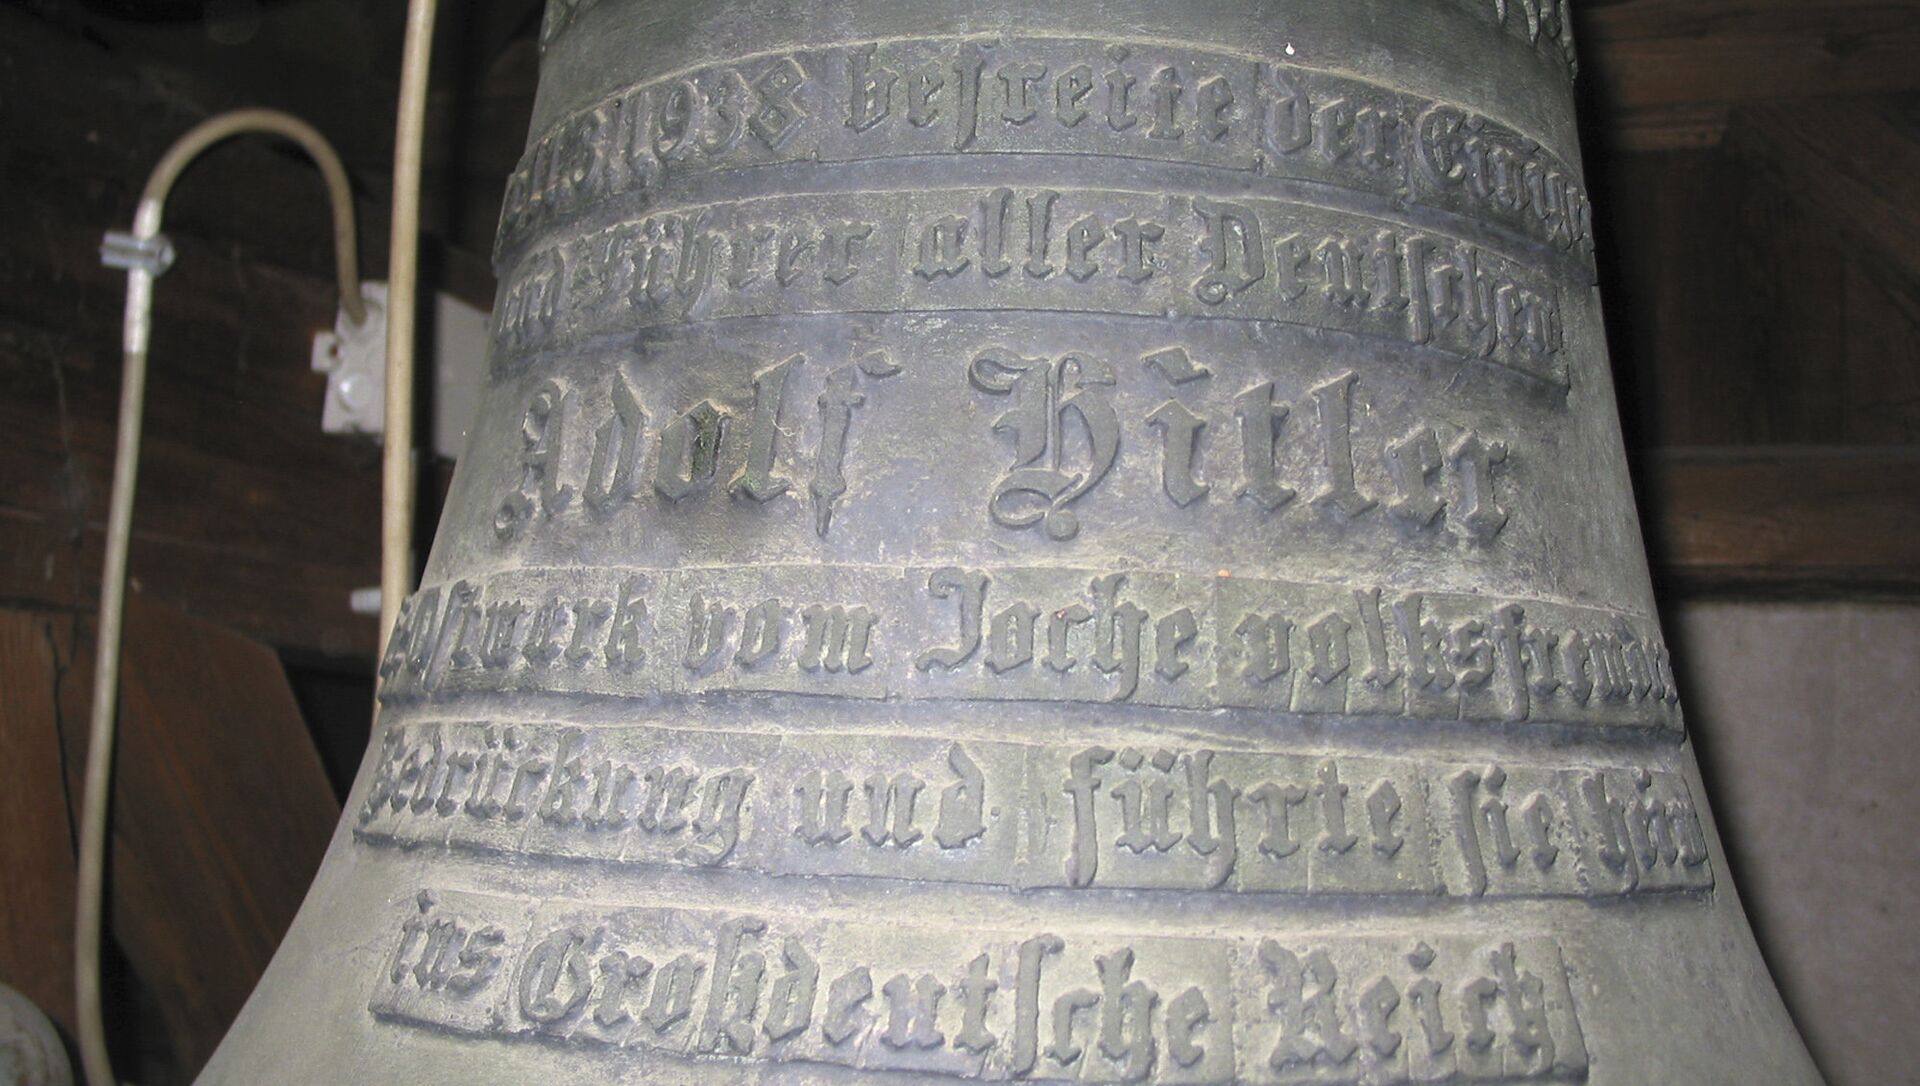 1938 befreite der Einige
und Führer aller Deutschen
Adolf Hitler
Ostmark vom Joche volksfremde
Bedrückung und führte sie heim
ins Großdeutsche Reich